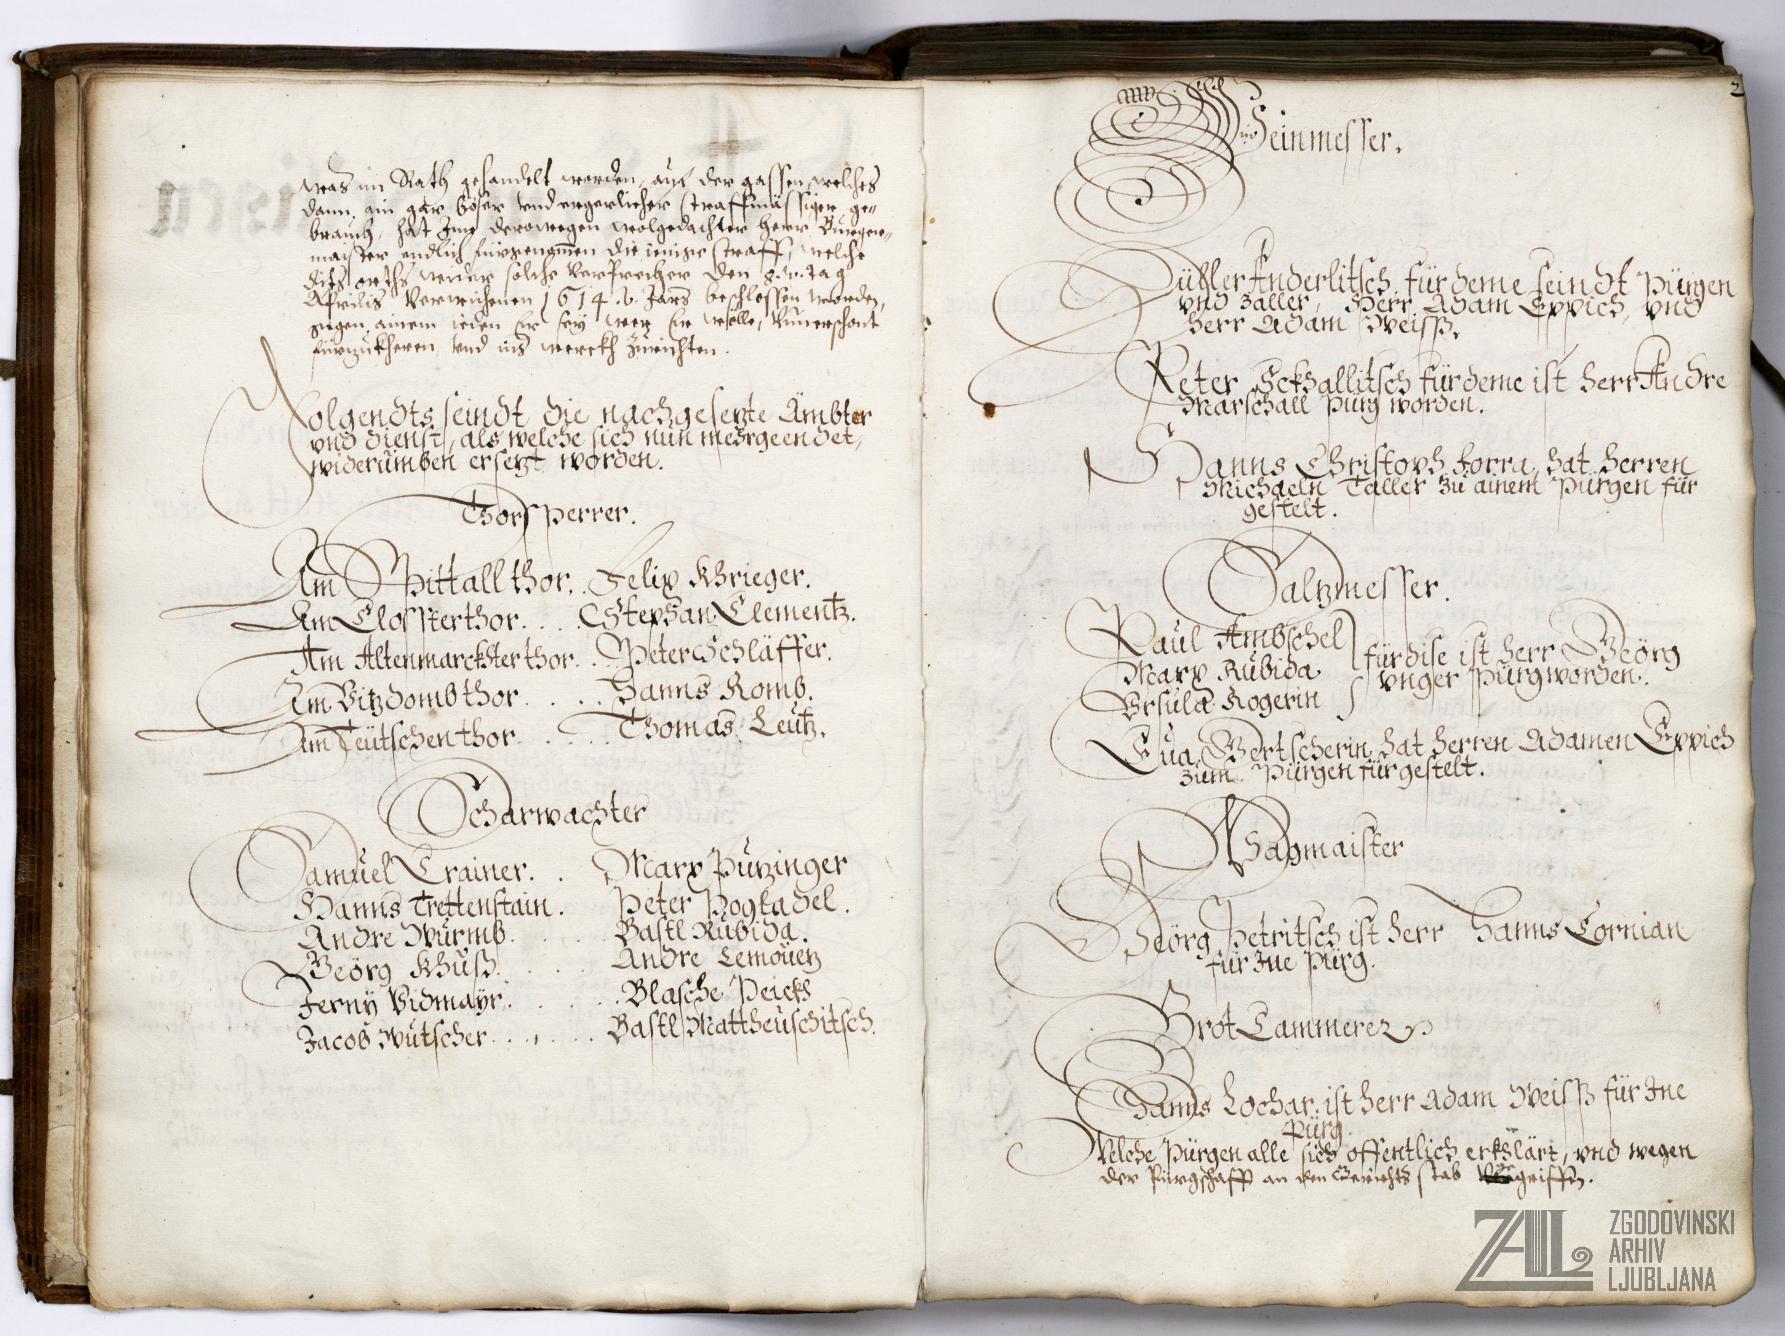 was im Rath gehandelt worden, auf der gassen, welches
dann ain gar böser vnd ergerlicher straffmässiger ge-
brauch, hat Ime derowegen wolgedachter herr Burger-
maister endlich fürgenomen die ienige straff, welche
diss orths wider solche Verbrecher den 8. tag
Aprilis verwichenen 1614. Jars beschlossen worden,
gegen ainem ieden Er sey wer Er wölle, Vnuerschont
fürzukheren vnd ins werckh zurichten.
Volgendts seindt die nachgesetzte Ämbter
vnd dienst, als welche sich nun mehr geendet,
widerumben ersetzt worden.
Thorsperrer.
Am Spittallthor. . Felix Khrieger.
Am Closterthor. . . . Stephan Clementz.
Am Altenmarckhterthor. . . Peter Schläffer.
Am Vitzdombthor. . . . . Hanns Romb.
Am Teütschenthor. . . . . Thomas Leutz.
Scharwachter
Samuel Crainer. . Marx Purzinger
Hanns Trettenstain. Peter Pogladel.
Andre Wurmb. . . . Bastl Rubida.
Geörg Khuß. . . . Andre Lemouetz
Ferny Vidmayr. . . . . Blasche Peickh
Jacob Wutscher. . . . . . Bastl Mattheuschitsch.
2
Weinmesser.
Anderlitsch, für deme seindt Pürgen
vnd Zaller, Herr Adam Eppich, vnd
Herr Adam Weiss.
Peter Sckhallitsch für deme ist herr Andre
Marschall Pürg worden.
Hanns Christoph Forra, hat herren
Michaeln Taller zu ainem Pürgen für
gestelt.
Saltzmesser.
Paul Ambschel
Marx Rubida
Vrsula Rogerin
für dise ist herr Geörg
Vnger Pürg worden.
Eua Gertscherin, hat herren Adamen Eppich
zum Pürgen fürgestelt.
Wagmaister
Geörg Petritsch ist herr Hanns Cornian
für Ine Pürg.
Brot Cammerer
Hanns Lochar, ist herr Adam Weiss für Ine
Pürg.
Welche Pürgen alle sich offentlich erkhlärt, vnd wegen
der Pürgschafft an den Gerichts stab griffen.
ZAL
ZGODOVINSKI
ARHIV
LJUBLJANA